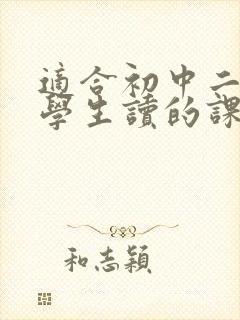 適合初中二
學生讀的課
和志穎